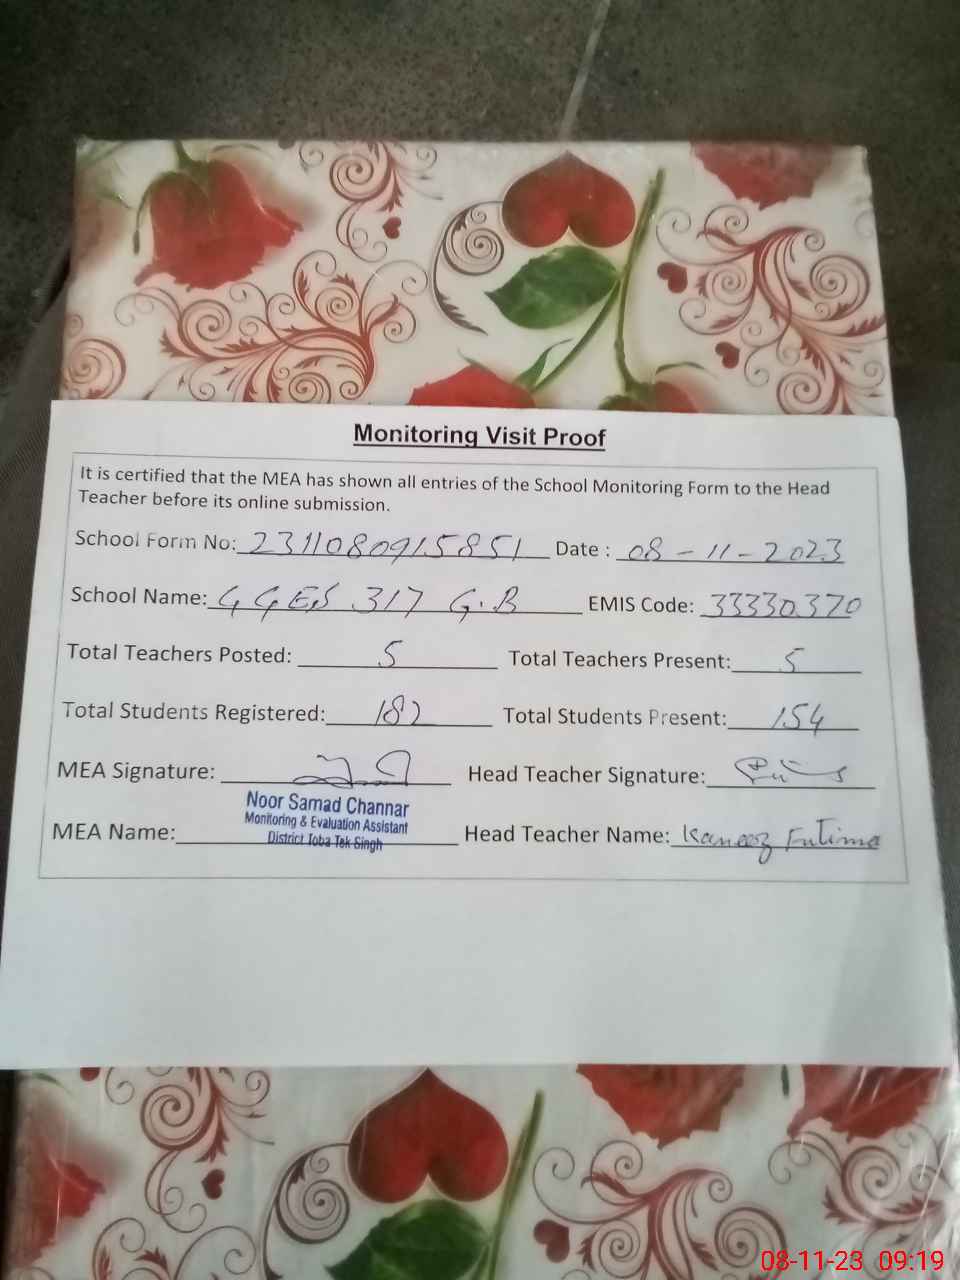 Monitoring Visit Proof
It is certified that the MEA has shown all entries of the School Monitoring Form to the Head
Teacher before its online submission.
School Form No: 2311080915851 Date : 08-11-2023
School Name: GGES 317 G.B EMIS Code: 33330370
Total Teachers Posted: 5 Total Teachers Present: 5
Total Students Registered: 182 Total Students Present: 154
MEA Signature: Head Teacher Signature:
Noor Samad Channar
Monitoring & Evaluation Assistant
District Toba Tek Singh
MEA Name: Head Teacher Name: Kaneez Fatima
08-11-23 09:19